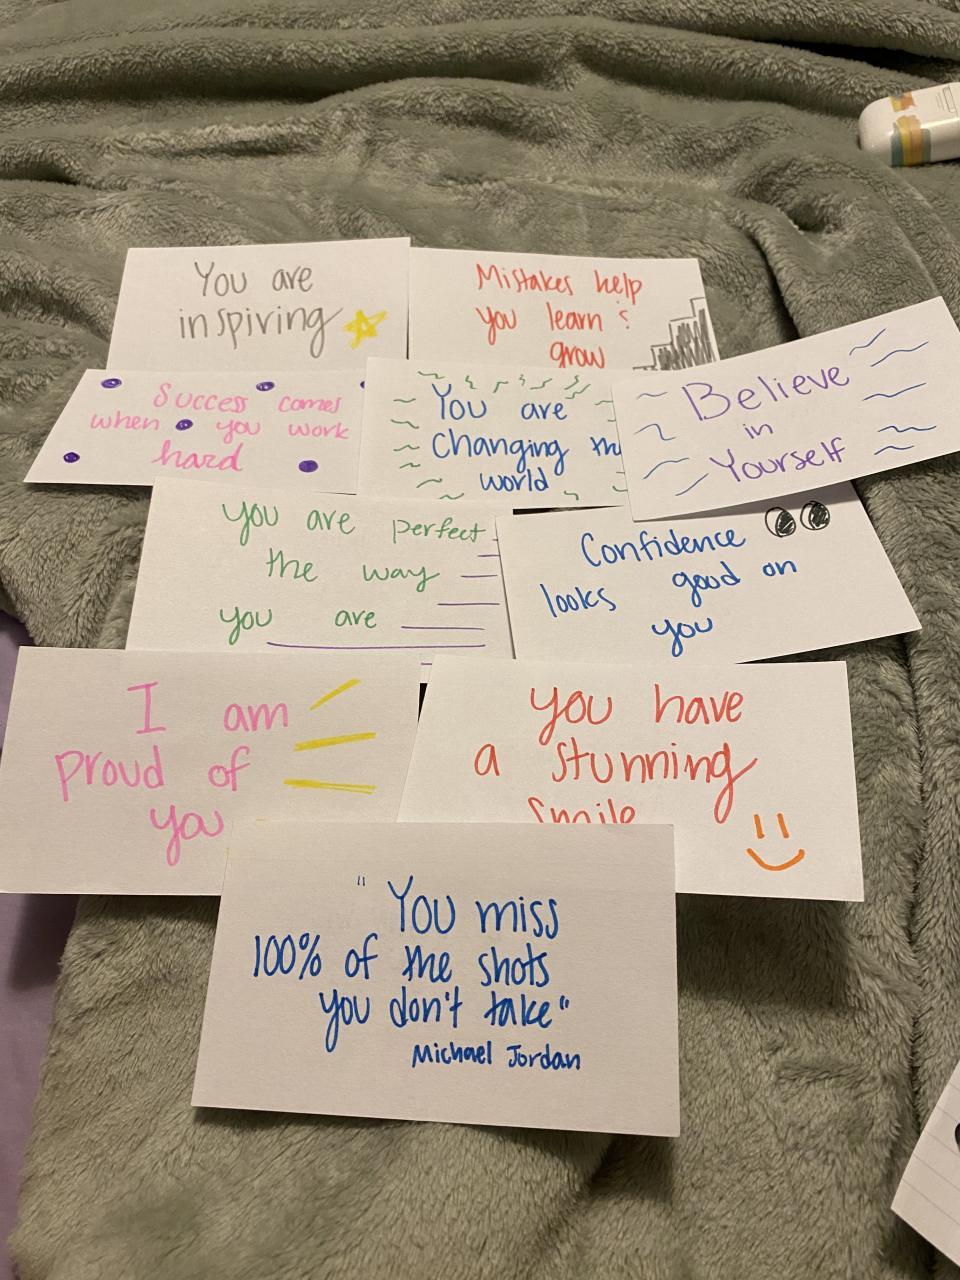 You are
inspiring
Mistakes help
you learn &
grow
Success comes
when you work
hard
You are
Changing the
world
Believe
in
Yourself
you are perfect
the way
you are
Confidence
looks good on
you
I am
proud of
you
you have
a stunning
smile
"You miss
100% of the shots
you don't take"
Michael Jordan